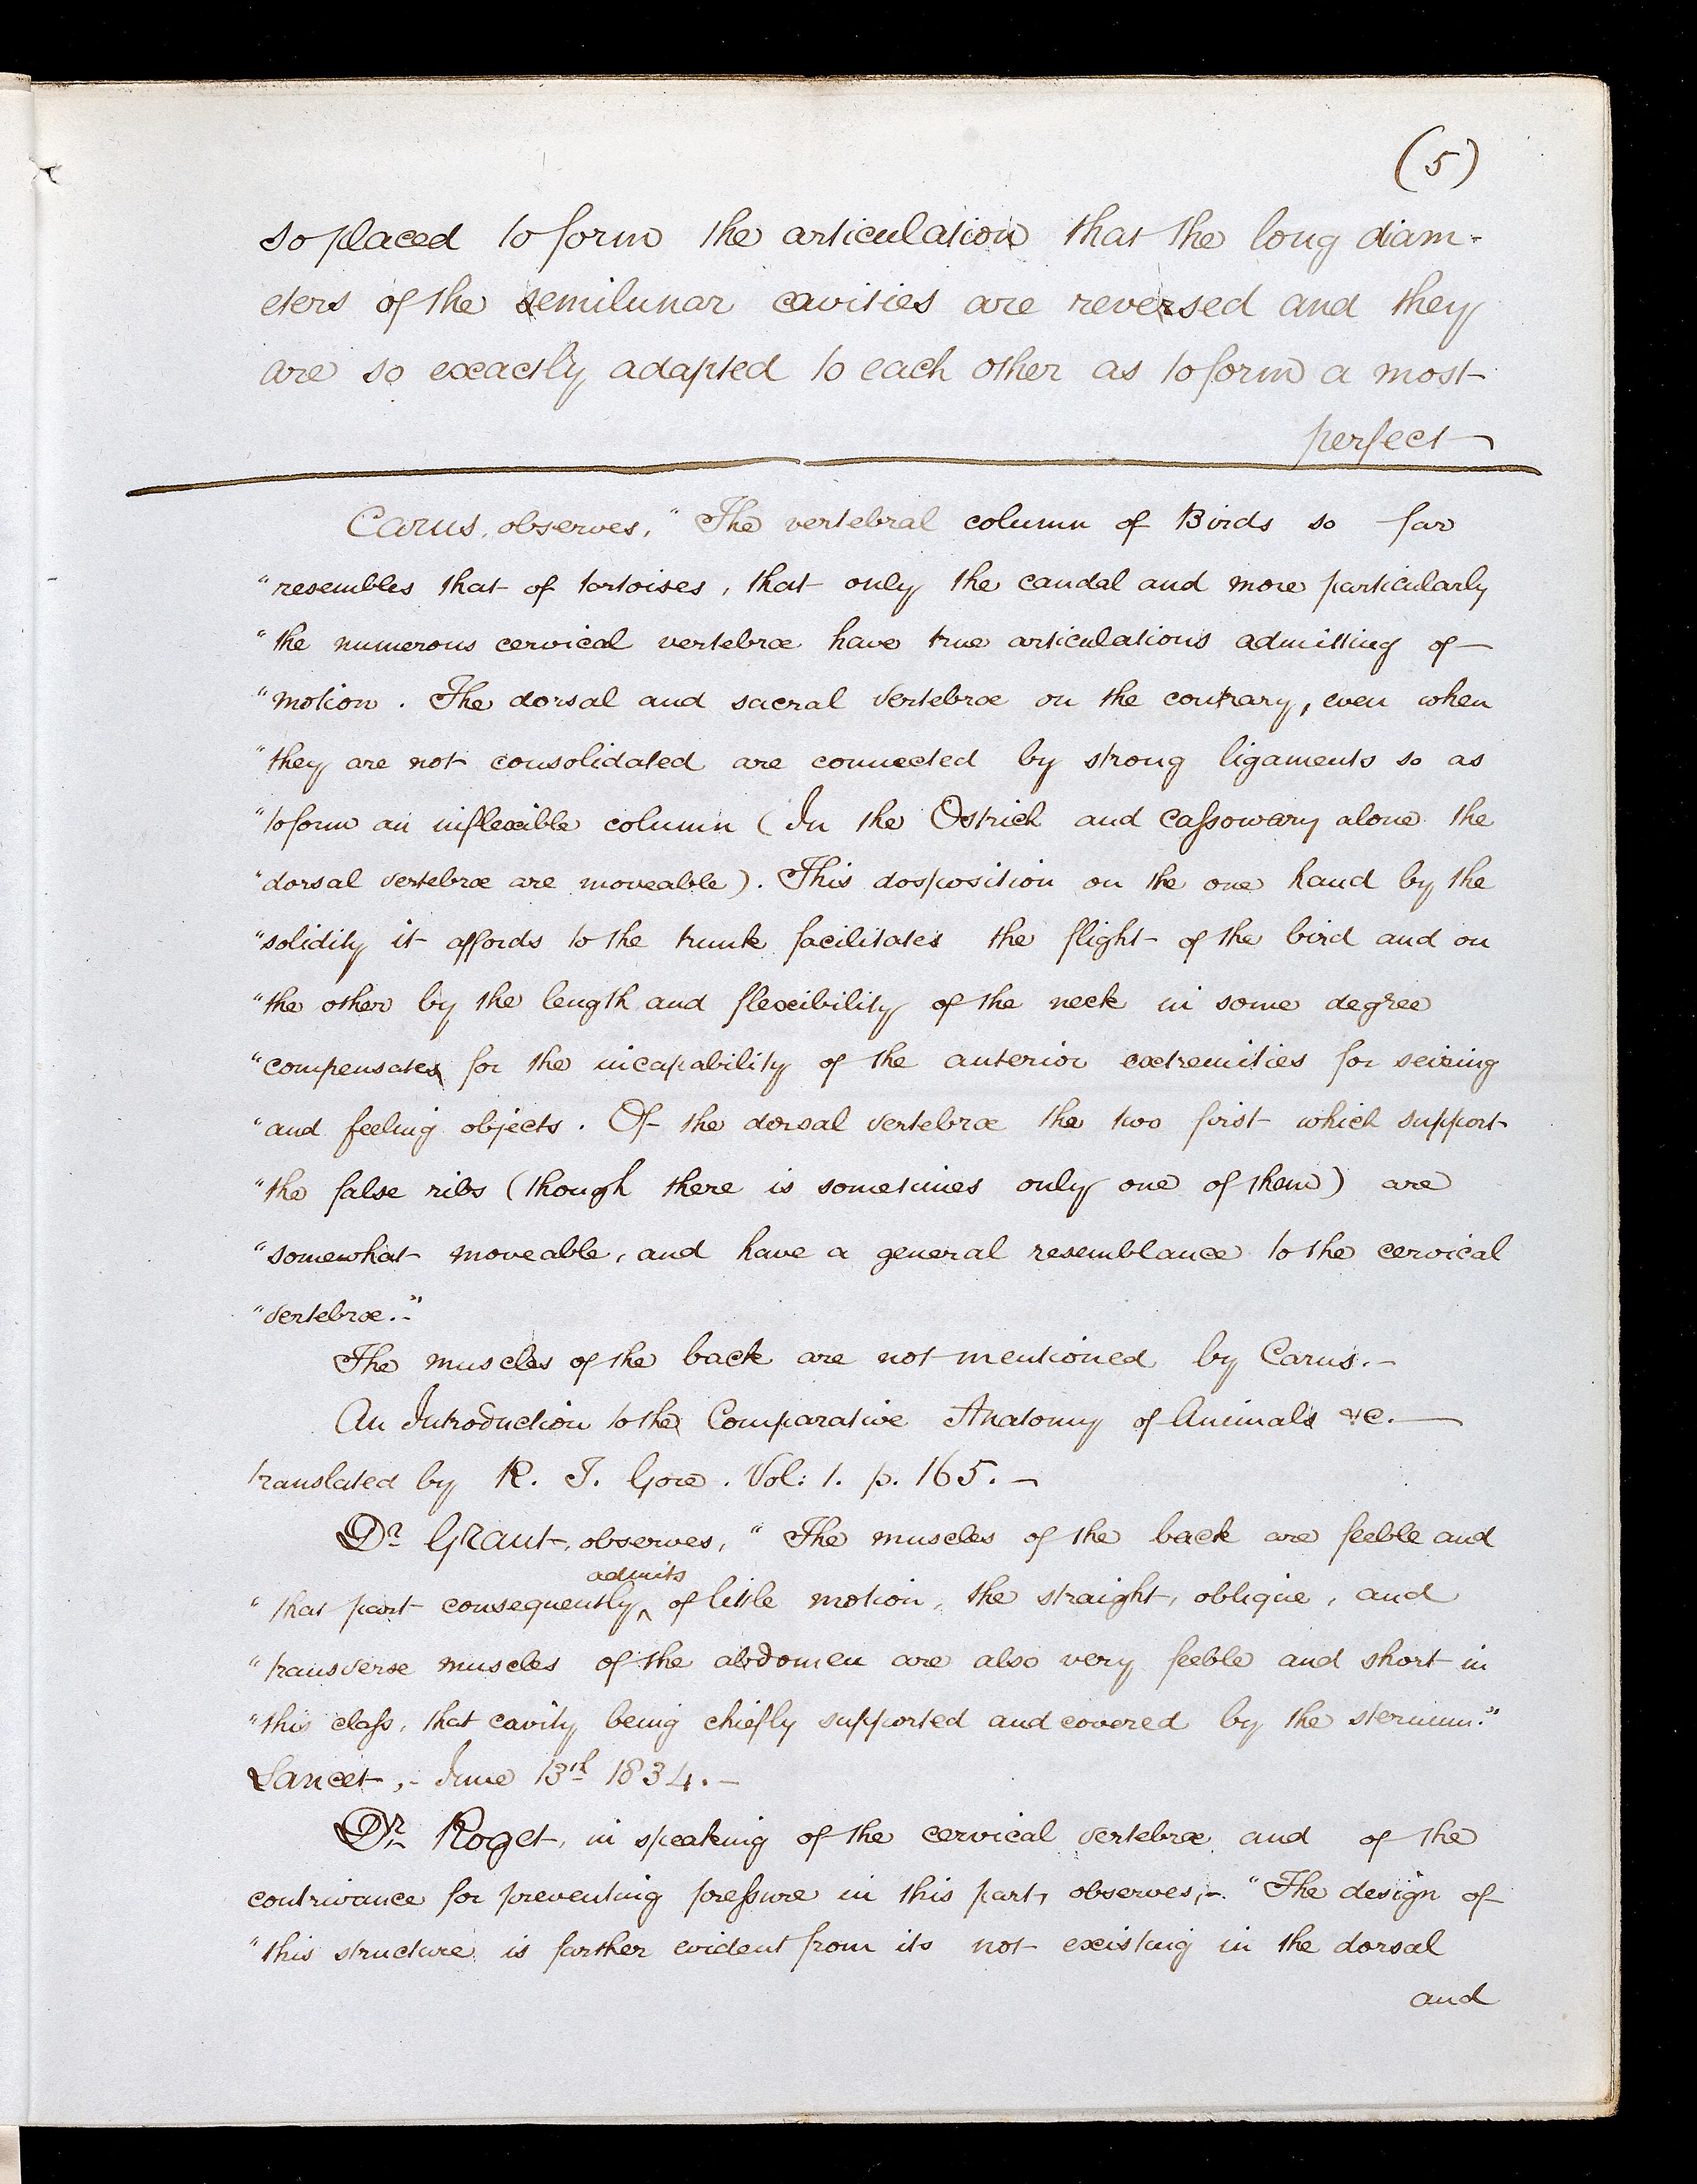 (5)
so placed to form the articulation that the long diam-
eters of the semilunar cavities are reversed and they
are so exactly adapted to each other as to form a most
perfect
Carus, observes, "The vertebral column of Birds so far
"resembles that of tortoises, that only the caudal and more particularly
"the numerous cervical vertebræ have true articulations admitting of
"motion. The dorsal and sacral vertebræ on the contrary, even when
"they are not consolidated are connected by strong ligaments so as
"to form an inflexible column (In the Ostrich and Caſsowary alone the
"dorsal vertebræ are moveable). This dosposition on the one hand by the
"solidity it affords to the trunk facilitates the flight of the bird and on
"the other by the length and flexibility of the neck in some degree
"compensates for the incapability of the anterior extremities for seizing
"and feeling objects. Of the dorsal vertebræ the two first which support
"the false ribs (though there is sometimes only one of them) are
"somewhat moveable, and have a general resemblance to the cervical
"vertebræ.-"
The muscles of the back are not mentioned by Carus.-
An Introduction to the Comparative Anatomy of Animals &c.—
translated by R. T. Gore. Vol: 1. p. 165.-
Dr Grant, observes, "The muscles of the back are feeble and
admits
"that part consequently ^ of little motion, the straight, oblique, and
"transverse muscles of the abdomen are also very feeble and short in
"this claſs, that cavity being chiefly supported and covered by the sternum."
Lancet,- June 13th 1834.-
Dr Roget, in speaking of the cervical vertebræ and of the
contrivance for preventing preſsure in this part, observes,- "The design of
"this structure is farther evident from its not existing in the dorsal
and